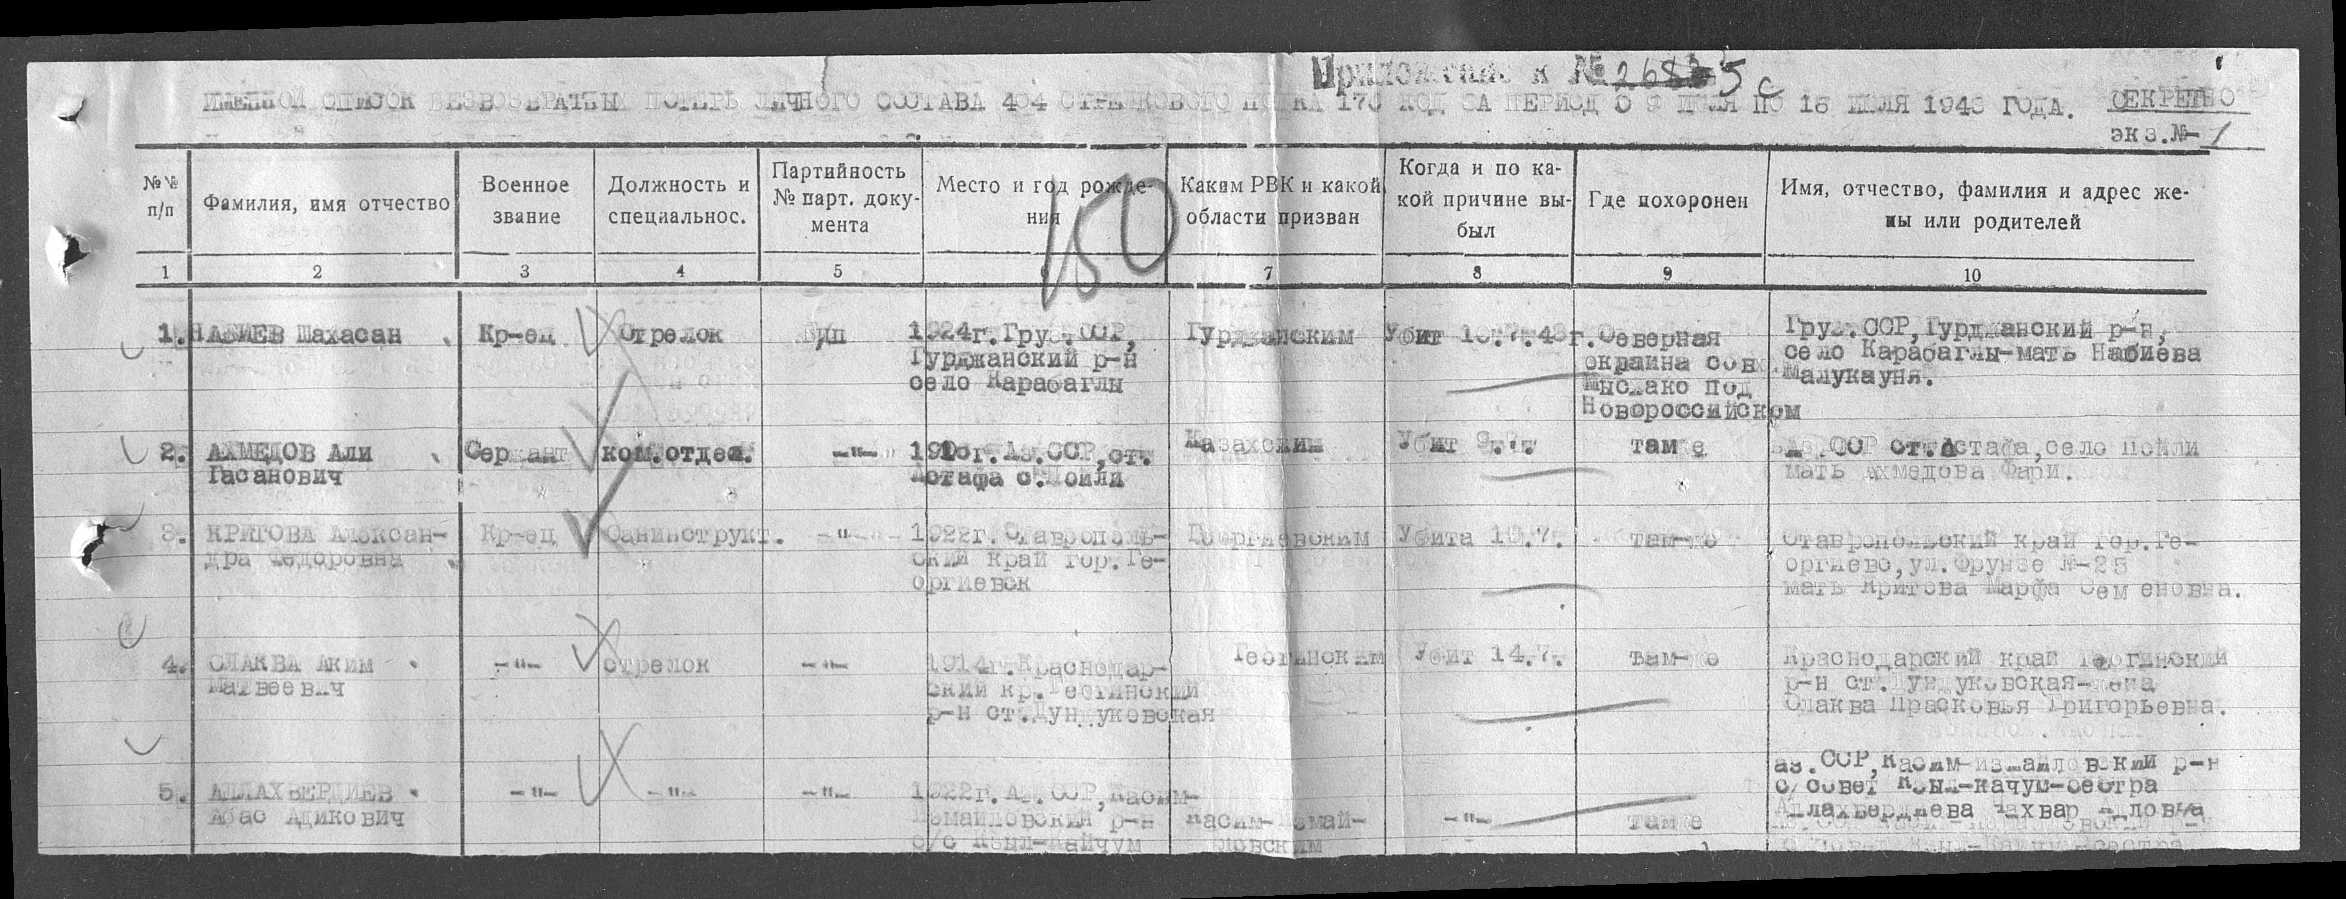 Приложение к № 26835 с
ИМЕННОЙ СПИСОК БЕЗВОЗВРАТНЫХ ПОТЕРЬ ЛИЧНОГО СОСТАВА 404 СТРЕЛКОВОГО ПОЛКА 176 КСД ЗА ПЕРИОД С 9 ИЮЛЯ ПО 16 ИЮЛЯ 1943 ГОДА.
СЕКРЕТНО
экз.№-1
150
№№ п/п
Фамилия, имя отчество
Военное звание
Должность и специальнос.
Партийность № парт. документа
Место и год рождения
Каким РВК и какой области призван
Когда и по какой причине выбыл
Где похоронен
Имя, отчество, фамилия и адрес жены или родителей
1 2 3 4 5 6 7 8 9 10
1. НАБИЕВ Шахасан
Кр-ец
Стрелок
1924г.Груз.ССР,
Гурджанский р-н
село Карабаглы
Гурджанским
Убит 7.43г.
Северная
окраина совх.
Мысхако под
Новороссийском
Груз.ССР,Гурджанский р-н,
село Карабаглы-мать Набиева
Малукауня.
2. АХМЕДОВ Али
Гасанович
Сержант
ком.отдел.
-"-
Аз.ССР,ст.
Астафа с.Пойли
Казахским
Убит 9.7.
там же
Аз.ССР ст.Астафа,село Пойли
мать Ахмедова Фари.
3. КРИТОВА Александра
Федоровна
Кр-ец
Санинструкт.
-"-
1922г.Ставрополь-
ский край гор.Ге-
оргиевск
Георгиевским
Убита 7.
там-же
Ставропольский край гор.Ге-
оргиевс,ул.Фрунзе №-25
мать Критова Марфа Семеновна.
4. СЛАКВА Аким
Матвеевич
-"-
стрелок
-"-
1914г.Краснодар-
ский кр.Геогинский
р-н ст.Дундуковская
Геогинским
Убит 14.7.
там-же
Краснодарский край Геогинский
р-н ст.Дундуковская-жена
Слаква Прасковья Григорьевна.
5. АЛЛАХВЕРДИЕВ
Абас Адикович
-"-
-"-
-"-
1922г.Аз.ССР,Касим-
Измайловский р-н
с/с
Касим-Измай-
ловским
-"-
там же
аз.ССР,Касим-измайловский р-н
с/совет сестра
Аллахвердиева